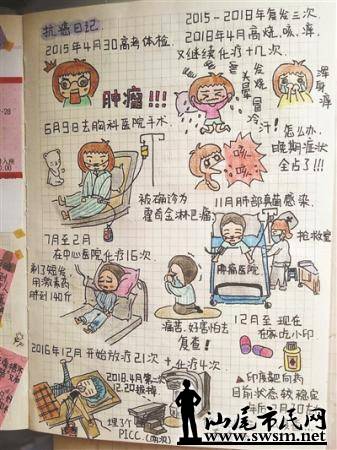 抗癌日记
2015年4月30高考体检
肿瘤!!!
6月9日去胸科医院手术
被确诊为
霍奇金淋巴瘤
7月至2月
在中心医院化疗16次
剃了短发
用激素药
胖到140斤
痛苦.好害怕去
复查!
2016年12月开始放疗21次+化疗4次
2018.4月第二次
12.20拔掉
埋了个
PICC.(两次)
2015-2018年复发三次.
2018年4月高烧、咳、浑
又继续化疗+几次
发烧
头晕
冒冷汗!
浑身痒
怎么办.
晚期症状
全占了!!!
咳
咳
11月肺部真菌感染.
抢救室
肿瘤医院
12月至现在
在家吃小印
▲印度靶向药
目前状态较稳定
汕尾市民网
www.swsm.net